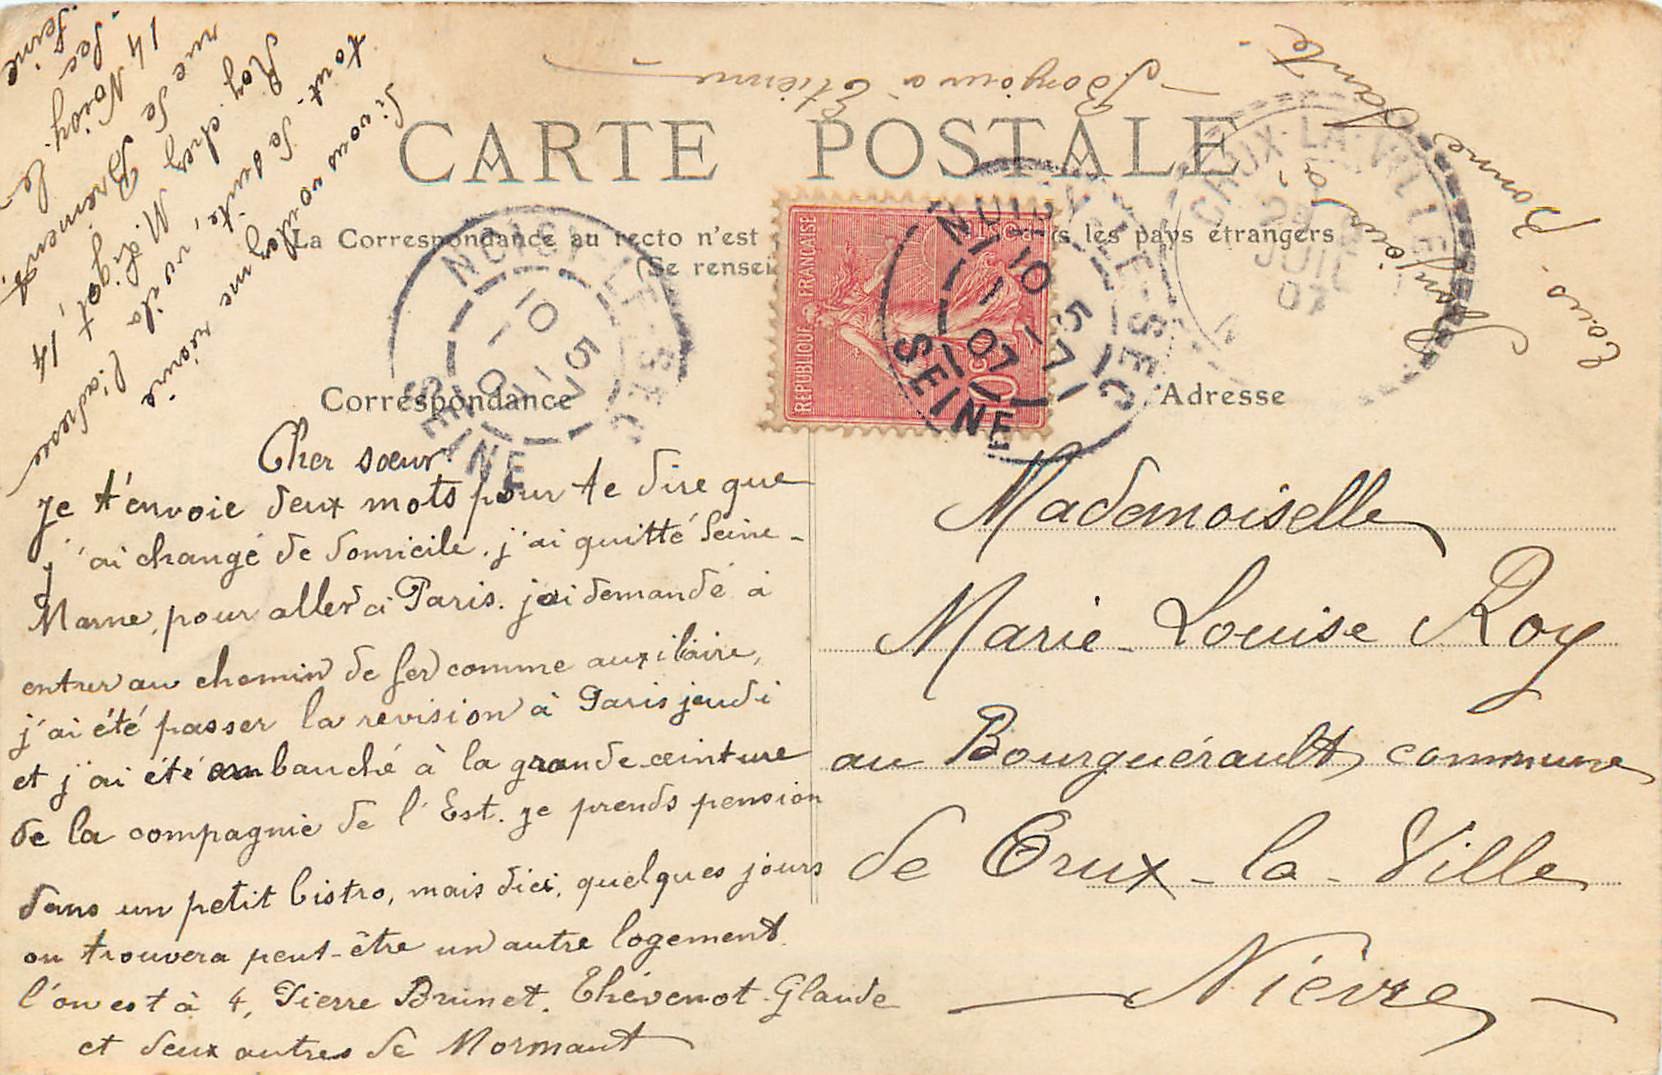 Bonjour à Étienne
CARTE POSTALE
La Correspondance au recto n'est les pays étrangers
(Se rensei
Correspondance
Adresse
Cher sœur.
Je t'envoie deux mots pour te dire que
j'ai changé de domicile. j'ai quitté Seine-
Marne, pour aller à Paris. j'ai demandé à
entrer au chemin de fer comme auxiliaire,
j'ai été passer la revision à Paris jeudi
et j'ai été embauché à la grande ceinture
de la compagnie de l'Est. Je prends pension
dans un petit bistro, mais dici, quelques jours
on trouvera peut-être un autre logement
l'on est à 4, Pierre Brunet. Thévenot Glaude
et deux autres de Mormant
Si vous voulez me réécrire
tout de suite, voila l'adresse
Roy chez M. Ligot, 14
rue de Brément,
14 Noisy-le-
Sec
Seine
bonjour à
tous. Bonne Santé-
Mademoiselle
Marie-Louise Roy
au Bourguérault, commune
de Crux-la-Ville
Nièvre
REPUBLIQUE FRANÇAISE
10c
NOISY-LE-SEC
10 5
1 -7
07
SEINE
NOISY-LE-SEC
10 5
1 -7
07
SEINE
CRUX-LA-VILLE
JUIL
07